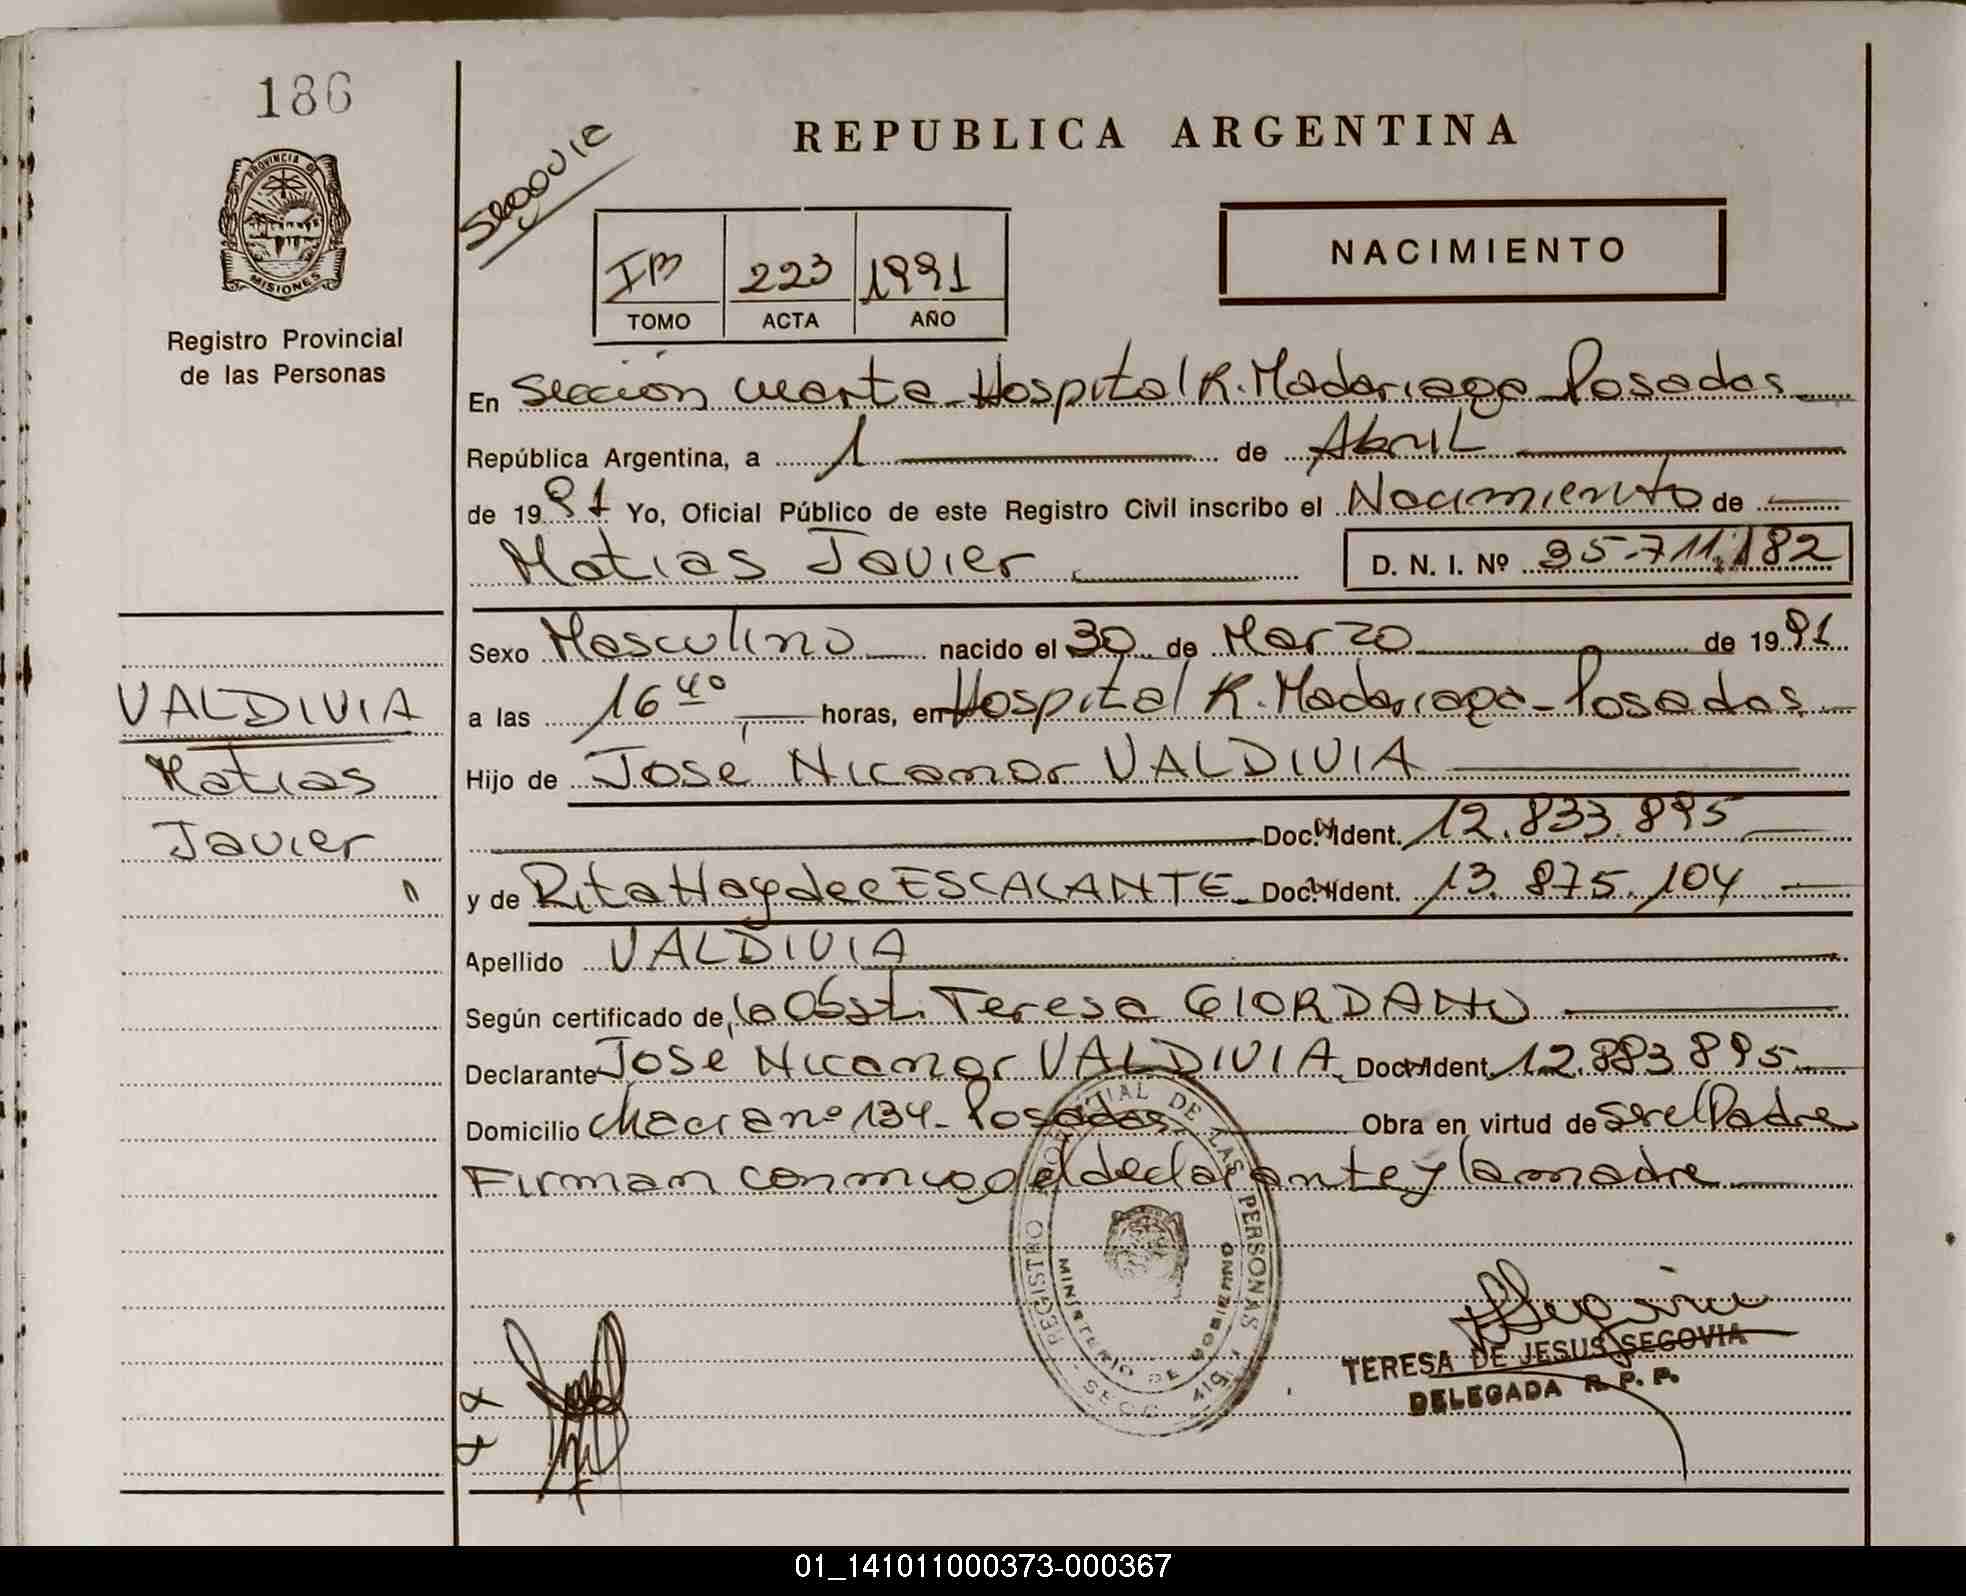 186
PROVINCIA DE
MISIONES
Registro Provincial
de las Personas
VALDIVIA
Matias
Javier
"
Segovia
REPUBLICA ARGENTINA
IB 223 1991
TOMO ACTA AÑO
NACIMIENTO
En Sección cuarta - Hospital R. Madariaga - Posadas
República Argentina, a 1 de Abril
de 1991 Yo, Oficial Público de este Registro Civil inscribo el Nacimiento de
Matias Javier D. N. I. Nº 35.711.182
Sexo Masculino nacido el 30 de Marzo de 1991
a las 16 40 horas, en Hospital R. Madariaga - Posadas
Hijo de José Nicanor VALDIVIA
Doc. Ident. 12.833.895
y de Rita Haydee ESCALANTE Doc. Ident. 13.875.104
Apellido VALDIVIA
Según certificado de la Obst. Teresa GIORDANO
Declarante José Nicanor VALDIVIA Doc. Ident. 12.883.895
Domicilio Chacra nº 134 - Posadas Obra en virtud de ser el Padre
Firman conmigo el declarante y la madre
REGISTRO DE LAS PERSONAS
MINISTERIO DE GOBIERNO
TERESA DE JESUS SEGOVIA
DELEGADA R. P. P.
01_141011000373-000367